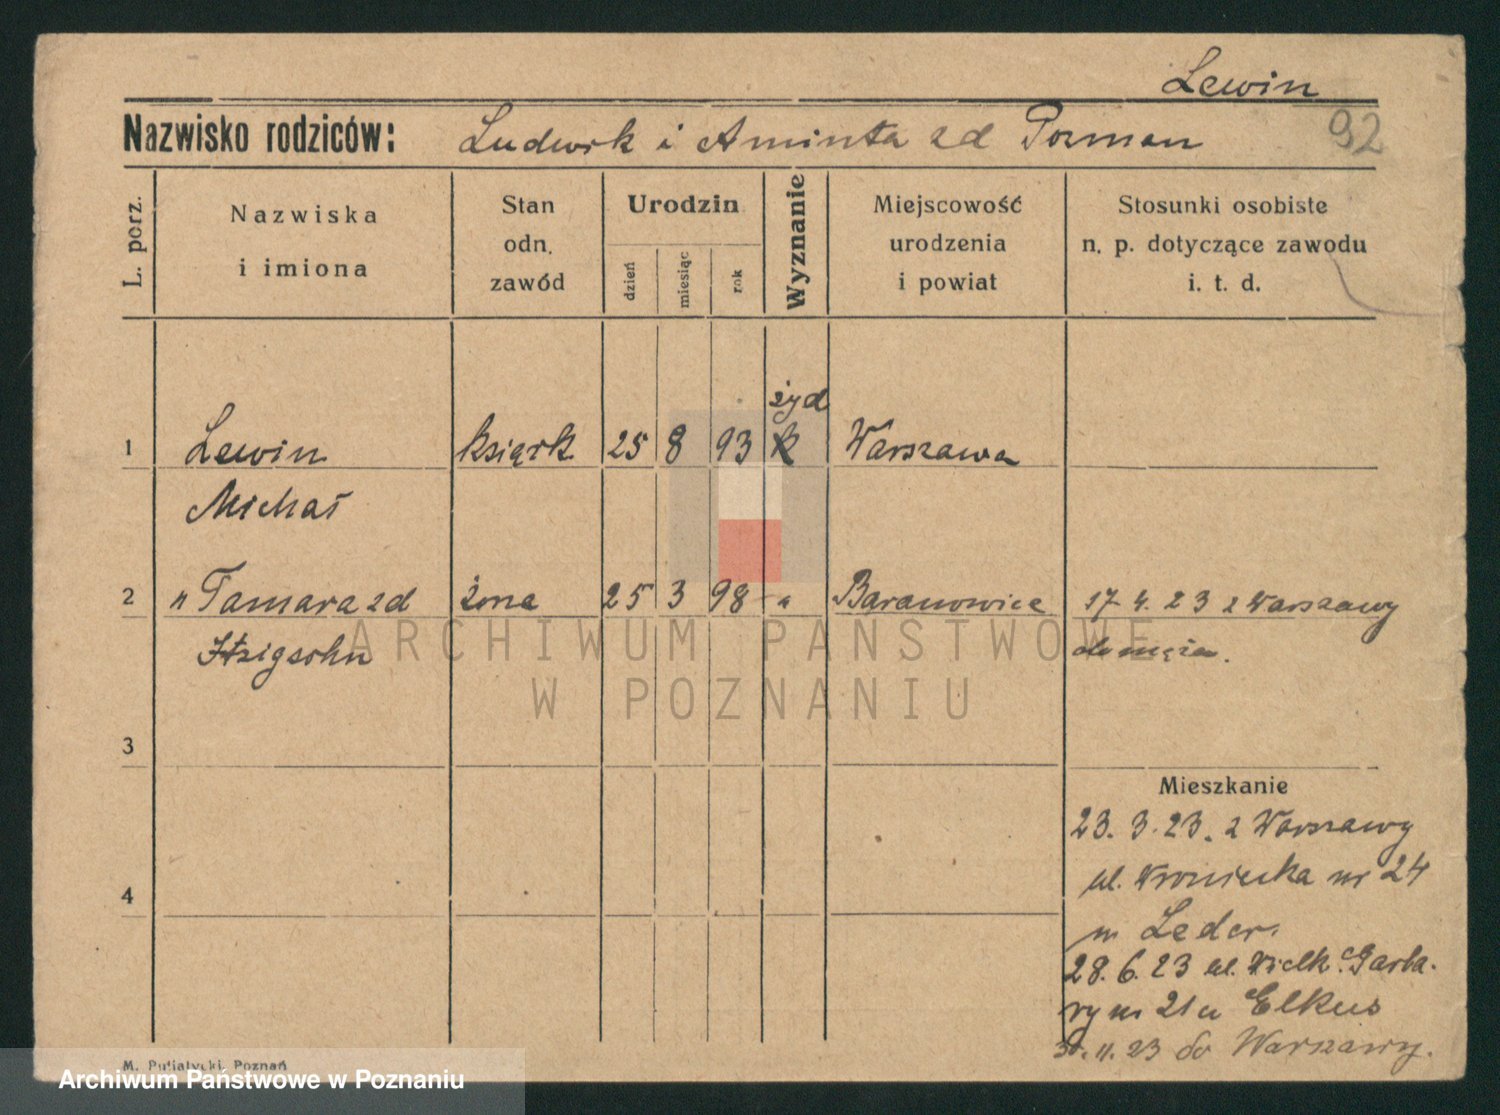 Lewin
Nazwisko rodziców: Ludwik i Aminta zd Pozman
92
L. porz.
Nazwiska
i imiona
Stan
odn.
zawód
Urodzin
dzień
miesiąc
rok
Wyznanie
Miejscowość
urodzenia
i powiat
Stosunki osobiste
n. p. dotyczące zawodu
i. t. d.
żyd
1 Lewin książk. 25 8 93 k Warszawa
Michał
2 " Tamara zd żona 25 3 98 " Baranowice 17. 4. 23 z Warszawy
do męża.
ARCHIWUM PAŃSTWOWE
W POZNANIU
3
Mieszkanie
23. 3. 23. z Warszawy
ul. Wroniecka nr 24
m Leder.
4
28. 6. 23 ul. Wielk. Garba-
ry nr 21 u Elkus
30. 11. 23 do Warszawy.
M. Putiatycki, Poznań
Archiwum Państwowe w Poznaniu